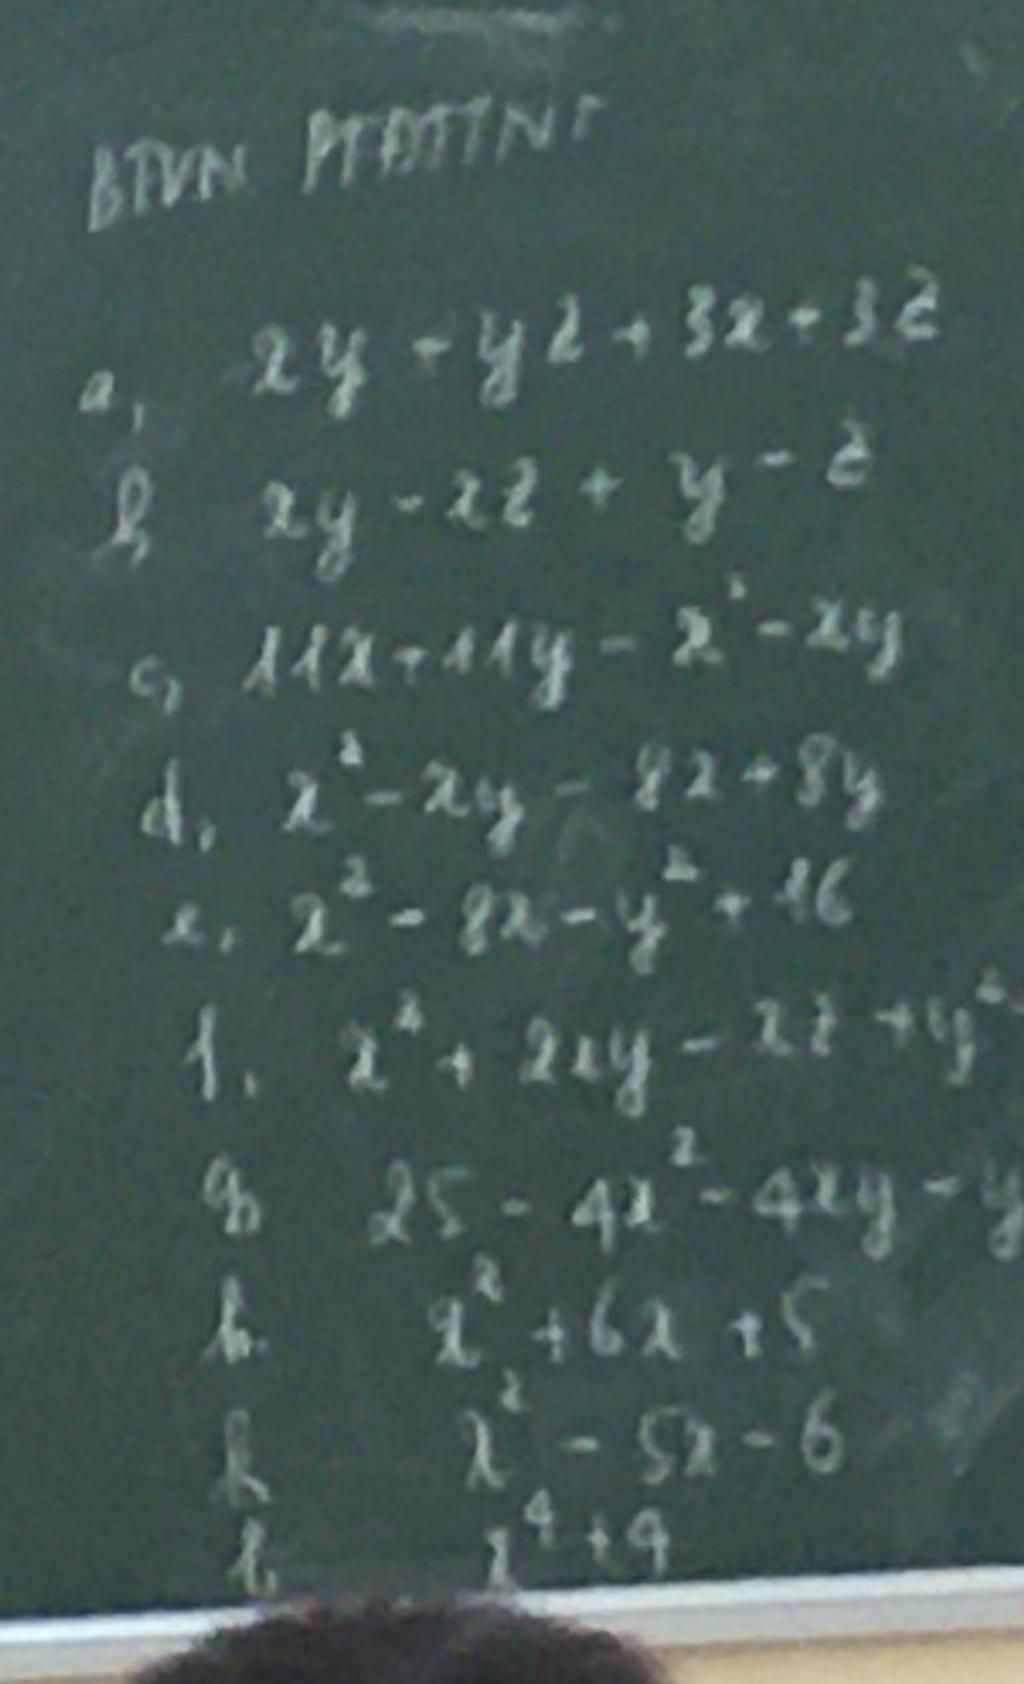 BTVN PTĐTTNT
a, xy + yz + 3x + 3z
b, xy - xz + y - z
c, 11x + 11y - x² - xy
d, x² - xy - 8x + 8y
e, x² - 8x - y² + 16
f, x² + 2xy - xz + y² -
g, 25 - 4x² - 4xy - y
h. x² + 6x + 5
k x² - 5x - 6
l, x⁴ + 4